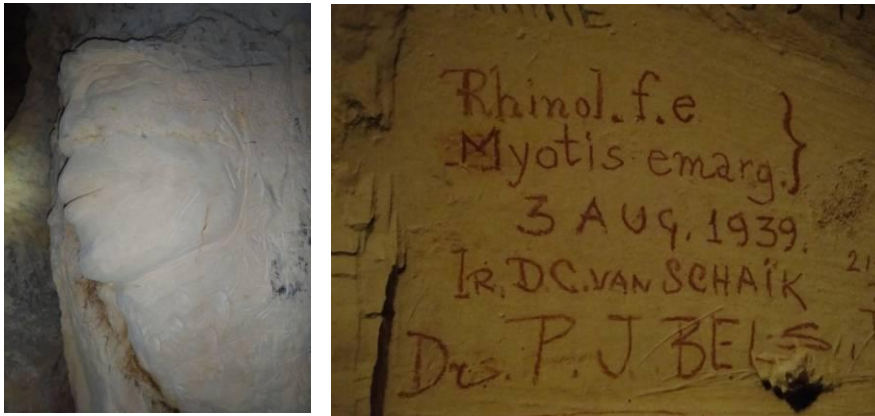 Rhinol.f.e
Myotis emarg.}
3 AUG. 1939.
IR. D.C. VAN SCHAÏK
Drs. P. J BELS